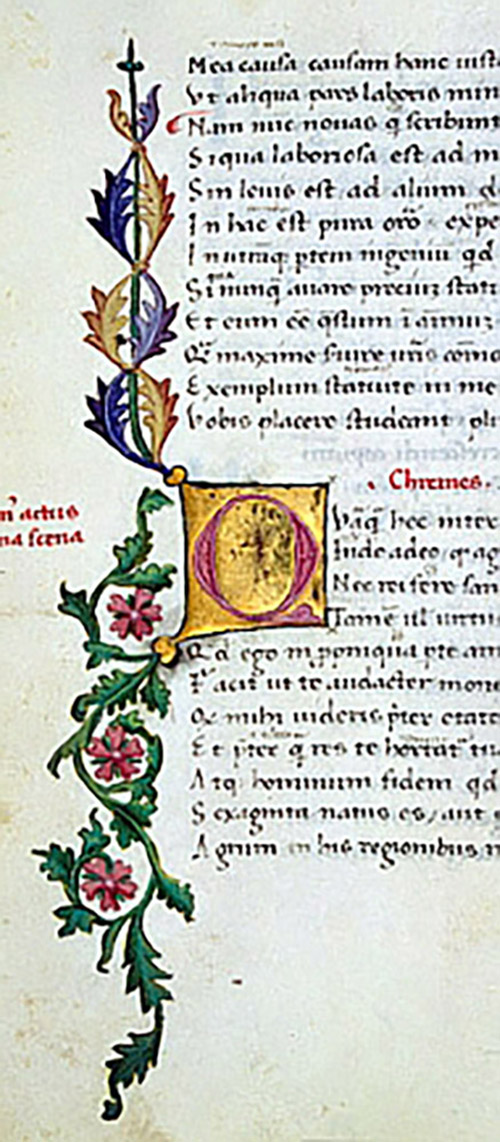 Mea causa causam hanc iusta
Vt aliqua pars laboris min
Nam nūc nouas q̄ scribunt
Siqua laboriosa est ad m
Sin lenis est ad alium
In hac est pura orō expe
In utraq ptem ingeniū qd
Si nunq̄ auare preciuȝ stat
Et eum eē q̄stum ī animuȝ
Q maxime seruire uris como
Exemplum statuite in me
Vobis placere studeant
Chremes.
m̄ actus
na scena
Q
Vāq hec inter
Inde adeo q ag
Nec rei fere san
Tamē ul uirtu
Qd ego in poniqua pte am
Facit ut te audacter mone
Qd mihi uideris p̄ter etate
Et p̄ter q̄ res te hortat tu
Atq hominum fidem qd
Sexaginta natus es, aut
Agrum in his regionibus m